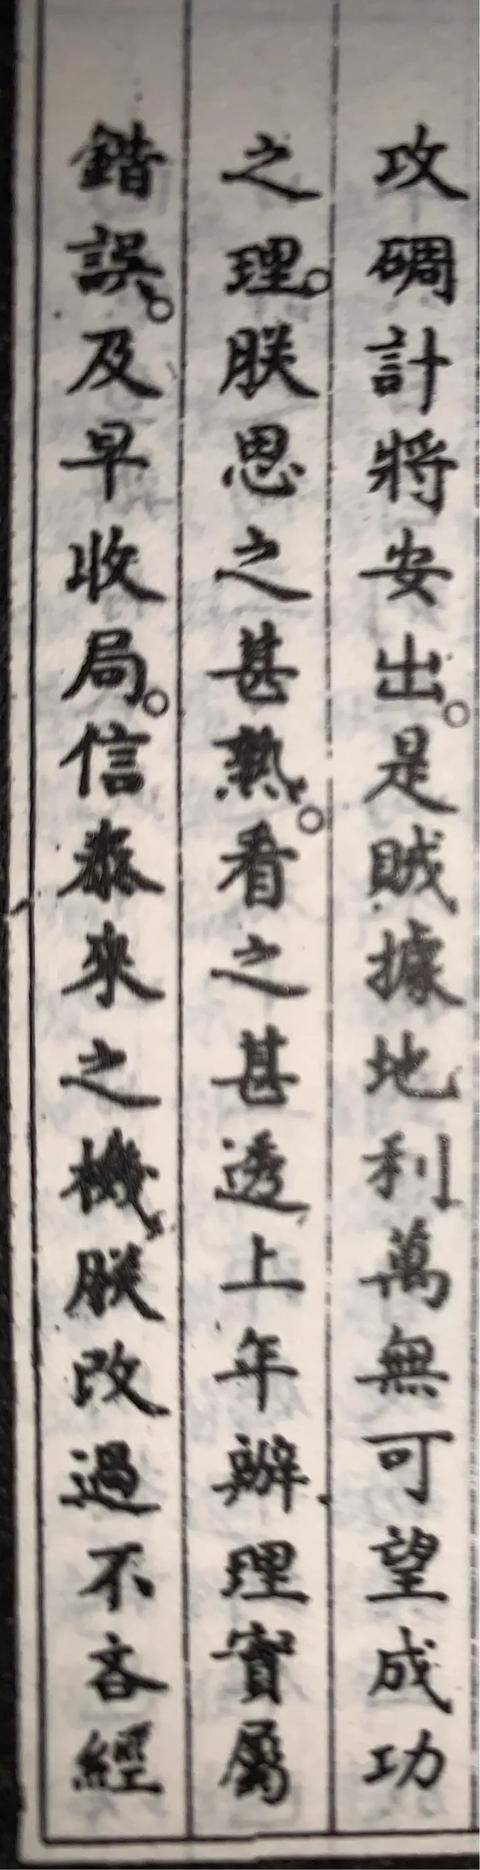 攻碉計將安出。是賊據地利萬無可望成功
之理。朕思之甚熟。看之甚透上年辦理實屬
錯誤。及早收局。信泰來之機朕改過不吝經